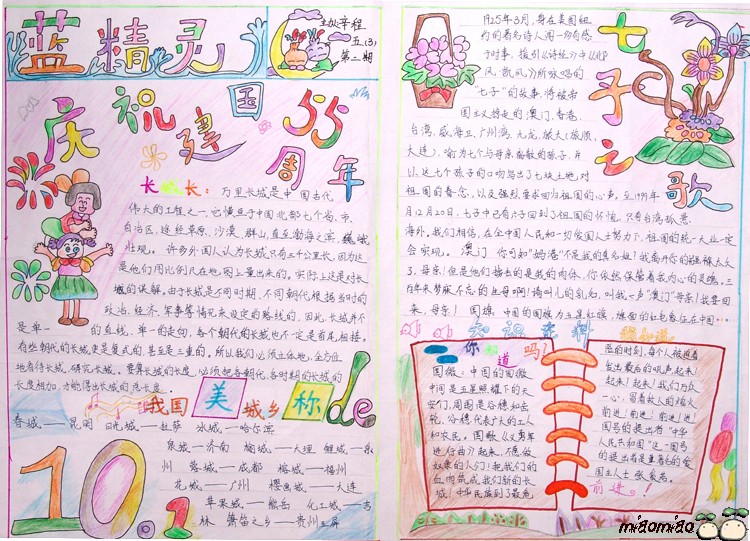 蓝精灵
五(3)
第二期
庆祝建国55周年
长城长：万里长城是中国古代
伟大的工程之一，它横亘于中国北部七个省、市、
自治区，途经草原、沙漠、群山，直至渤海之滨，巍峨
壮观。许多外国人认为长城只有三千公里长，因为这
是他们用比例尺在地图上量出来的。实际上这是对长
城的误解。由于长城是不同时期、不同朝代根据当时的
政治、经济、军事等情况来设定的路线的，因此，长城并不
是单一的直线、单一的走向，各个朝代的长城也不一定是首尾相接。
有些朝代的长城更是复式的，甚至是三重的，所以我们必须立体地、全方位
地看待长城、研究长城。要算长城的长度，必须把各朝代、各时期的长城的
长度相加，才能得出长城的总长度。
我国美城乡称de
春城——昆明 日光城——拉萨 冰城——哈尔滨
泉城——济南 榆城——大理 鲤城——泉
州 蓉城——成都 榕城——福州
花城——广州 樱画城——大连
苹果城——熊岳 化工城——吉
林 芦笛之乡——贵州玉屏
10.1
七子之歌
1925年3月，身在美国纽
约的著名诗人闻一多有感
于时事，援引《诗经》中《邶
风·凯风》所咏唱的
"七子"的故事，将被帝
国主义掠走的澳门、香港、
台湾、威海卫、广州湾、九龙、旅大(旅顺、
大连)，喻为七个与母亲离散的孩子，并
以这七个孩子的口吻写出了七块土地，对
祖国的眷念，以及强烈要求回归祖国的心声。至1999年
12月20日，七子中已有六子回到了祖国的怀抱，只有台湾孤悬
海外。我们相信，在全中国人民和一切爱国人士努力下，祖国的统一大业一定
会实现。 澳门 你可知"妈港"不是我的真名姓！我离开你的襁褓太久
了，母亲！但是他们掳去的是我的肉体，你依然保管着我内心的灵魂。三
百年来梦寐不忘的生母啊！请叫儿的乳名，叫我一声"澳门"母亲！我要回
来，母亲！ 国旗：中国的国旗为五星红旗，旗面的红色象征在中国…
知识百科
你知道吗！
国徽：中国的国徽
中间是五星照耀下的天
安门，周围是谷穗和齿
轮，谷穗代表广大的工人
和农民。国歌《义勇军
进行曲》起来，不愿做
奴隶的人们！把我们的
血肉筑成我们新的长
城！中华民族到了最危
险的时刻，每个人被迫着
发出最后的吼声。起来！
起来！起来！我们万众
一心，冒着敌人的炮火
前进！前进！前进！进！
国号的提出者"中华
人民共和国"这一国号
的提出者是著名的爱
国主人士张奚若。
前进。！
miaomiao